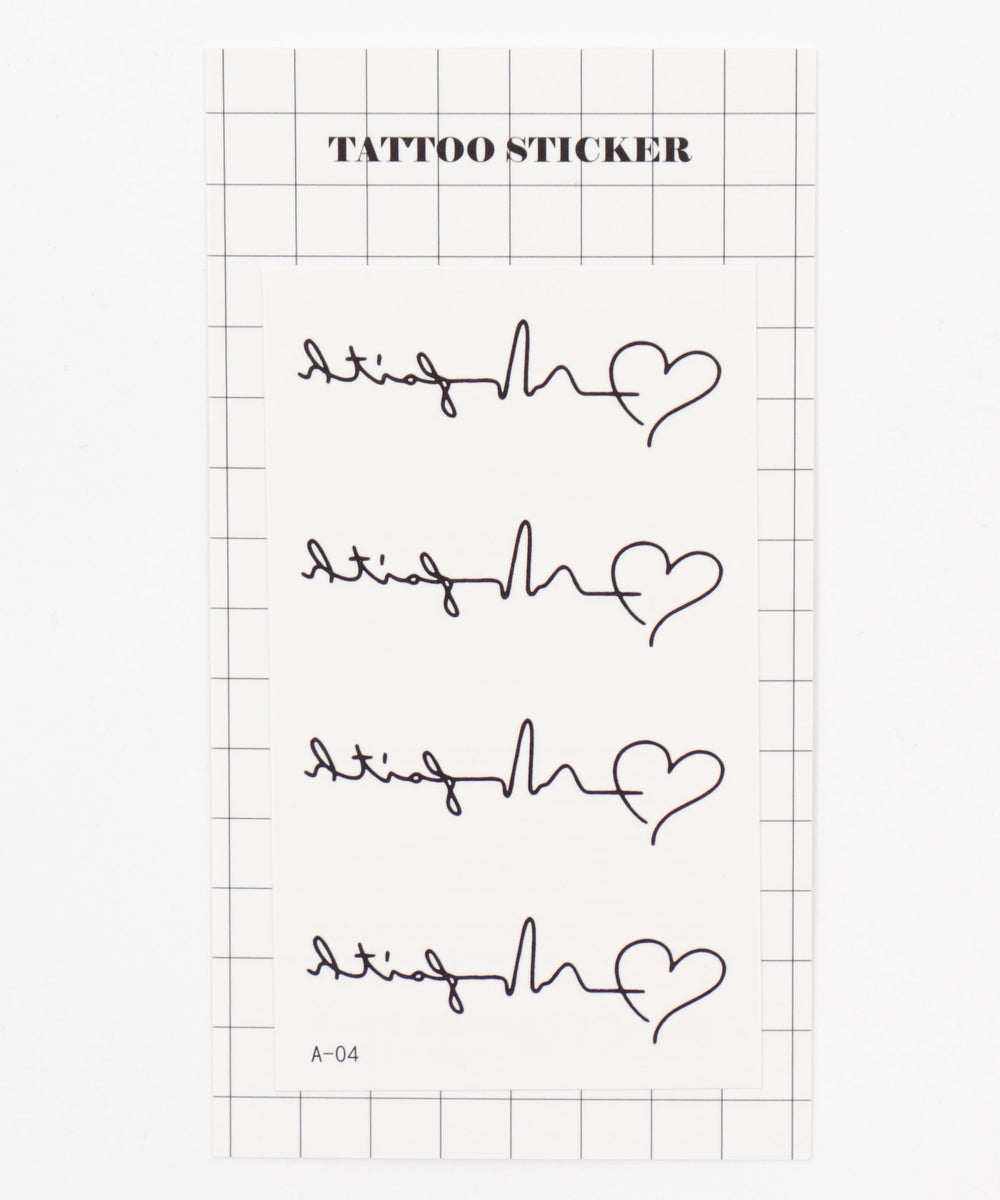 TATTOO STICKER
faith
faith
faith
faith
A-04